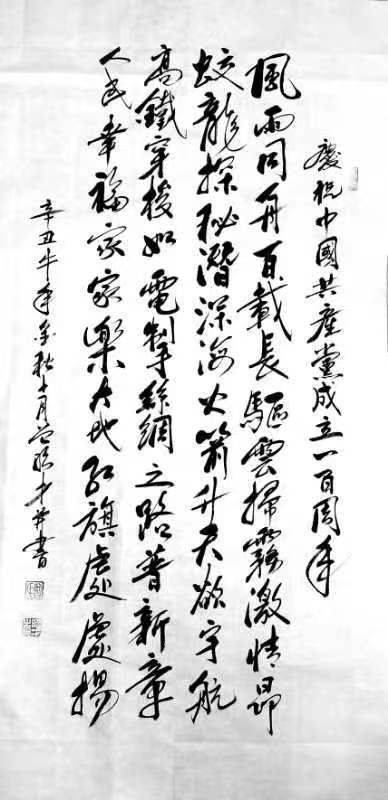 慶祝中國共產黨成立一百周年
風雨同舟百載長驅雲掃霧激情昂
蛟龍探秘潛深海火箭升天欲宇航
高鐵穿梭如電掣絲綢之路普新章
人民幸福家家樂大地紅旗處處揚
辛丑牛年金秋十月曾
才并書